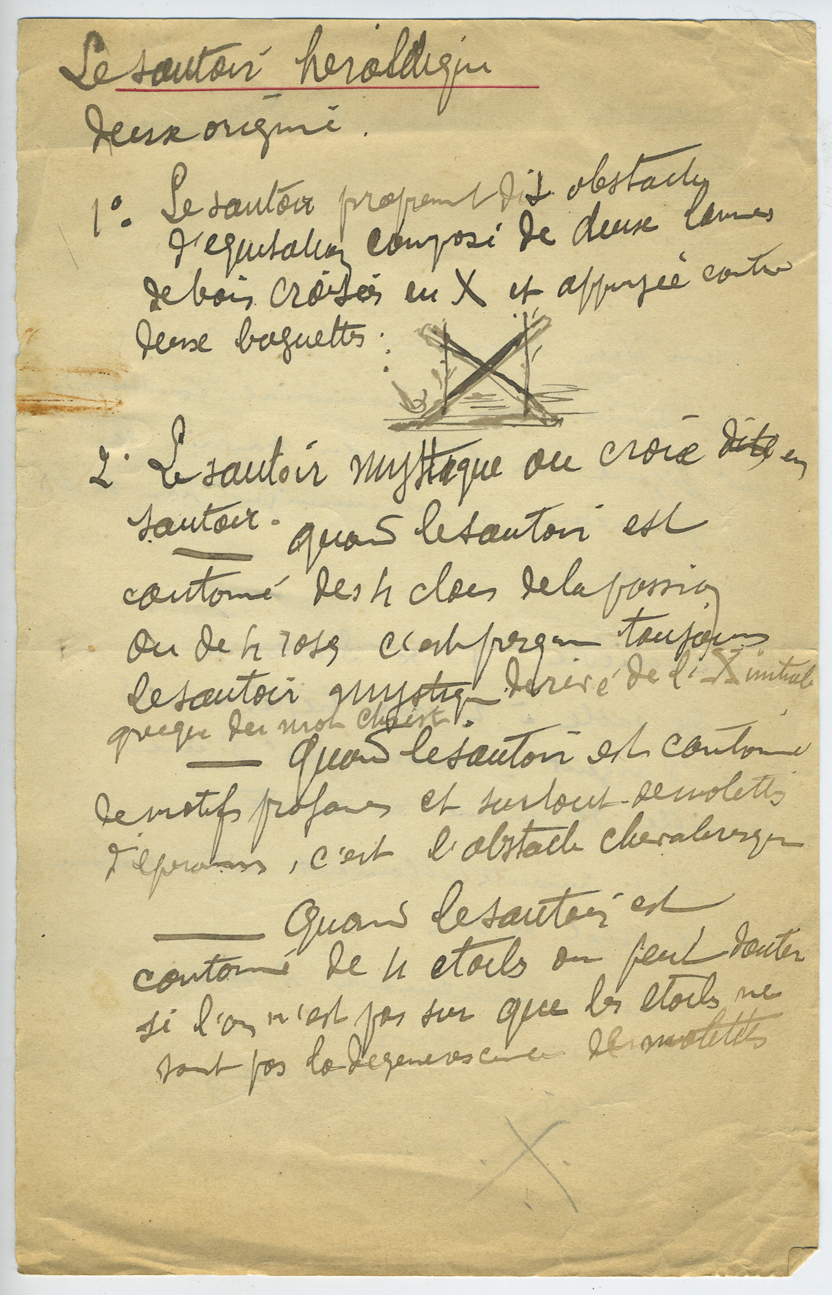 Le sautoir héraldique
deux origine.
1º. Le sautoir proprement dit obstacle
d'equitation composé de deux lames
de bois croisées en X et appuyée contre
deux baguettes :
2º Le sautoir mystique ou croix dite en
sautoir - quand le sautoir est
cantonné des 4 clous de la passion
ou de 4 roses c'est presque toujours
le sautoir mystique derivé de l'X initiale
grecque du mot Christ.
— Quand le sautoir est cantonné
de motifs profanes et surtout de molettes
d'éperons, c'est l'obstacle chevaleresque
— Quand le sautoir est
cantonné de 4 etoiles on peut douter
si l'on n'est pas sur que les etoiles ne
sont pas la degenerescence de molettes
X